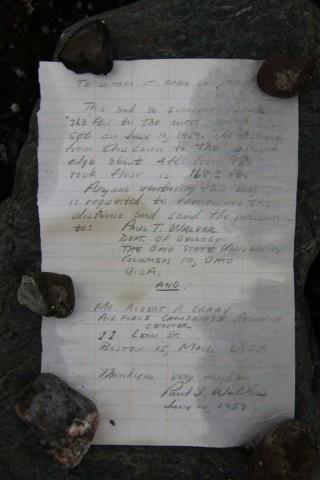 To whom it may concern:
This and a similar cairn
21.3 ft. to the west were
set on July 10, 1959. The distance
from this cairn to the glacier
edge about 4 ft. from the
rock floor is 168.3 ft.
Anyone venturing this way
is requested to remeasure this
distance and send the information
to: Paul T. Walker
Dept. of Geology
The Ohio State University
Columbus 10, Ohio
U.S.A.
AND
Mr. Albert P. Crary
Air Force Cambridge Research
Center
11 Leon St.
Boston 15, Mass. U.S.A.
Thankyou very much.
Paul T. Walker
July 10, 1959